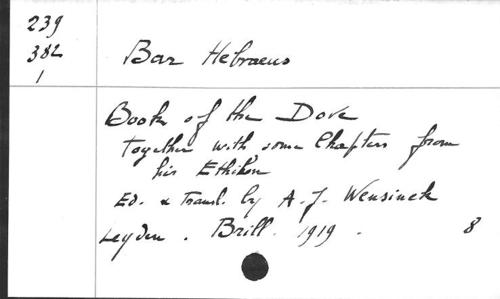 239
382
1
Bar Hebraeus
Book of the Dove
together with some Chapters from
his Ethikon
Ed. & Transl. by A. J. Wensinck
Leyden . Brill . 1919 . 8